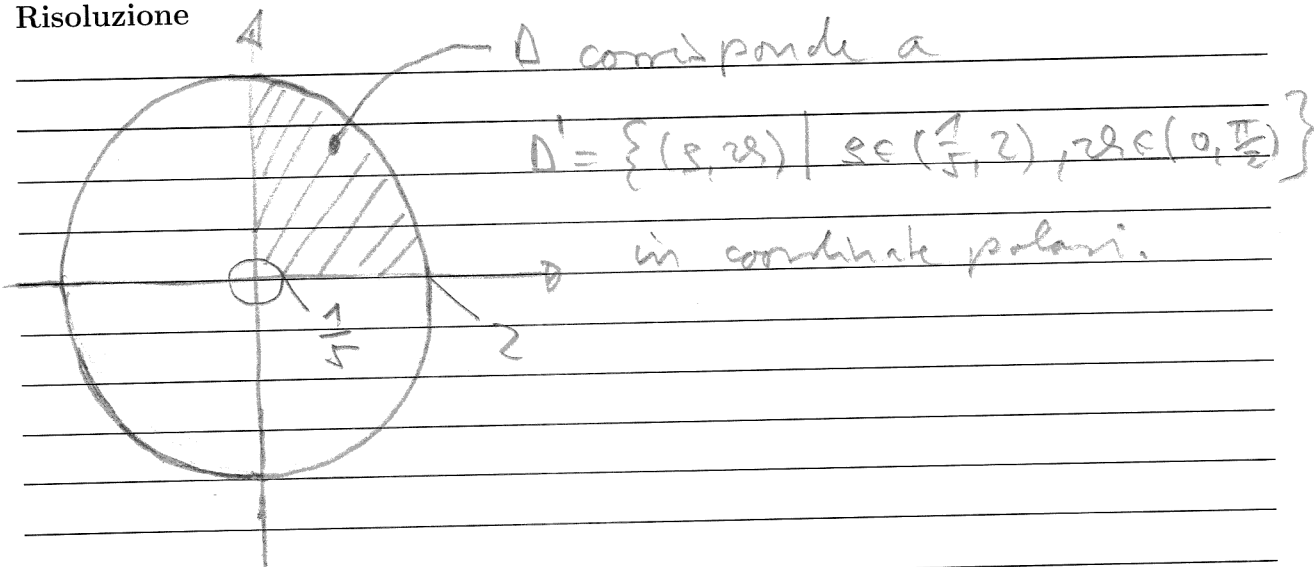 Risoluzione
D corrisponde a
D' = {(ρ, ϑ) | ρ ∈ (1/5, 2), ϑ ∈ (0, π/2)}
in coordinate polari.
1/5
2